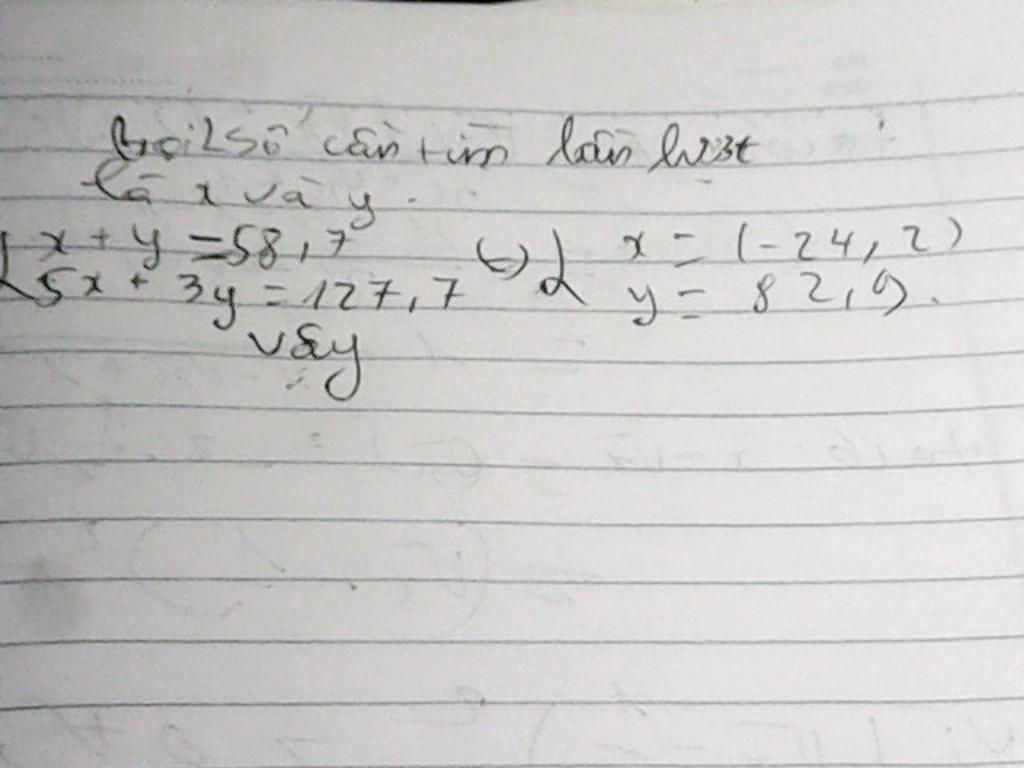 Gọi 2 số cần tìm lần lượt
là x và y.
{ x + y = 58,7 (=) { x = (-24,2)
{ 5x + 3y = 127,7 { y = 82,9.
vậy